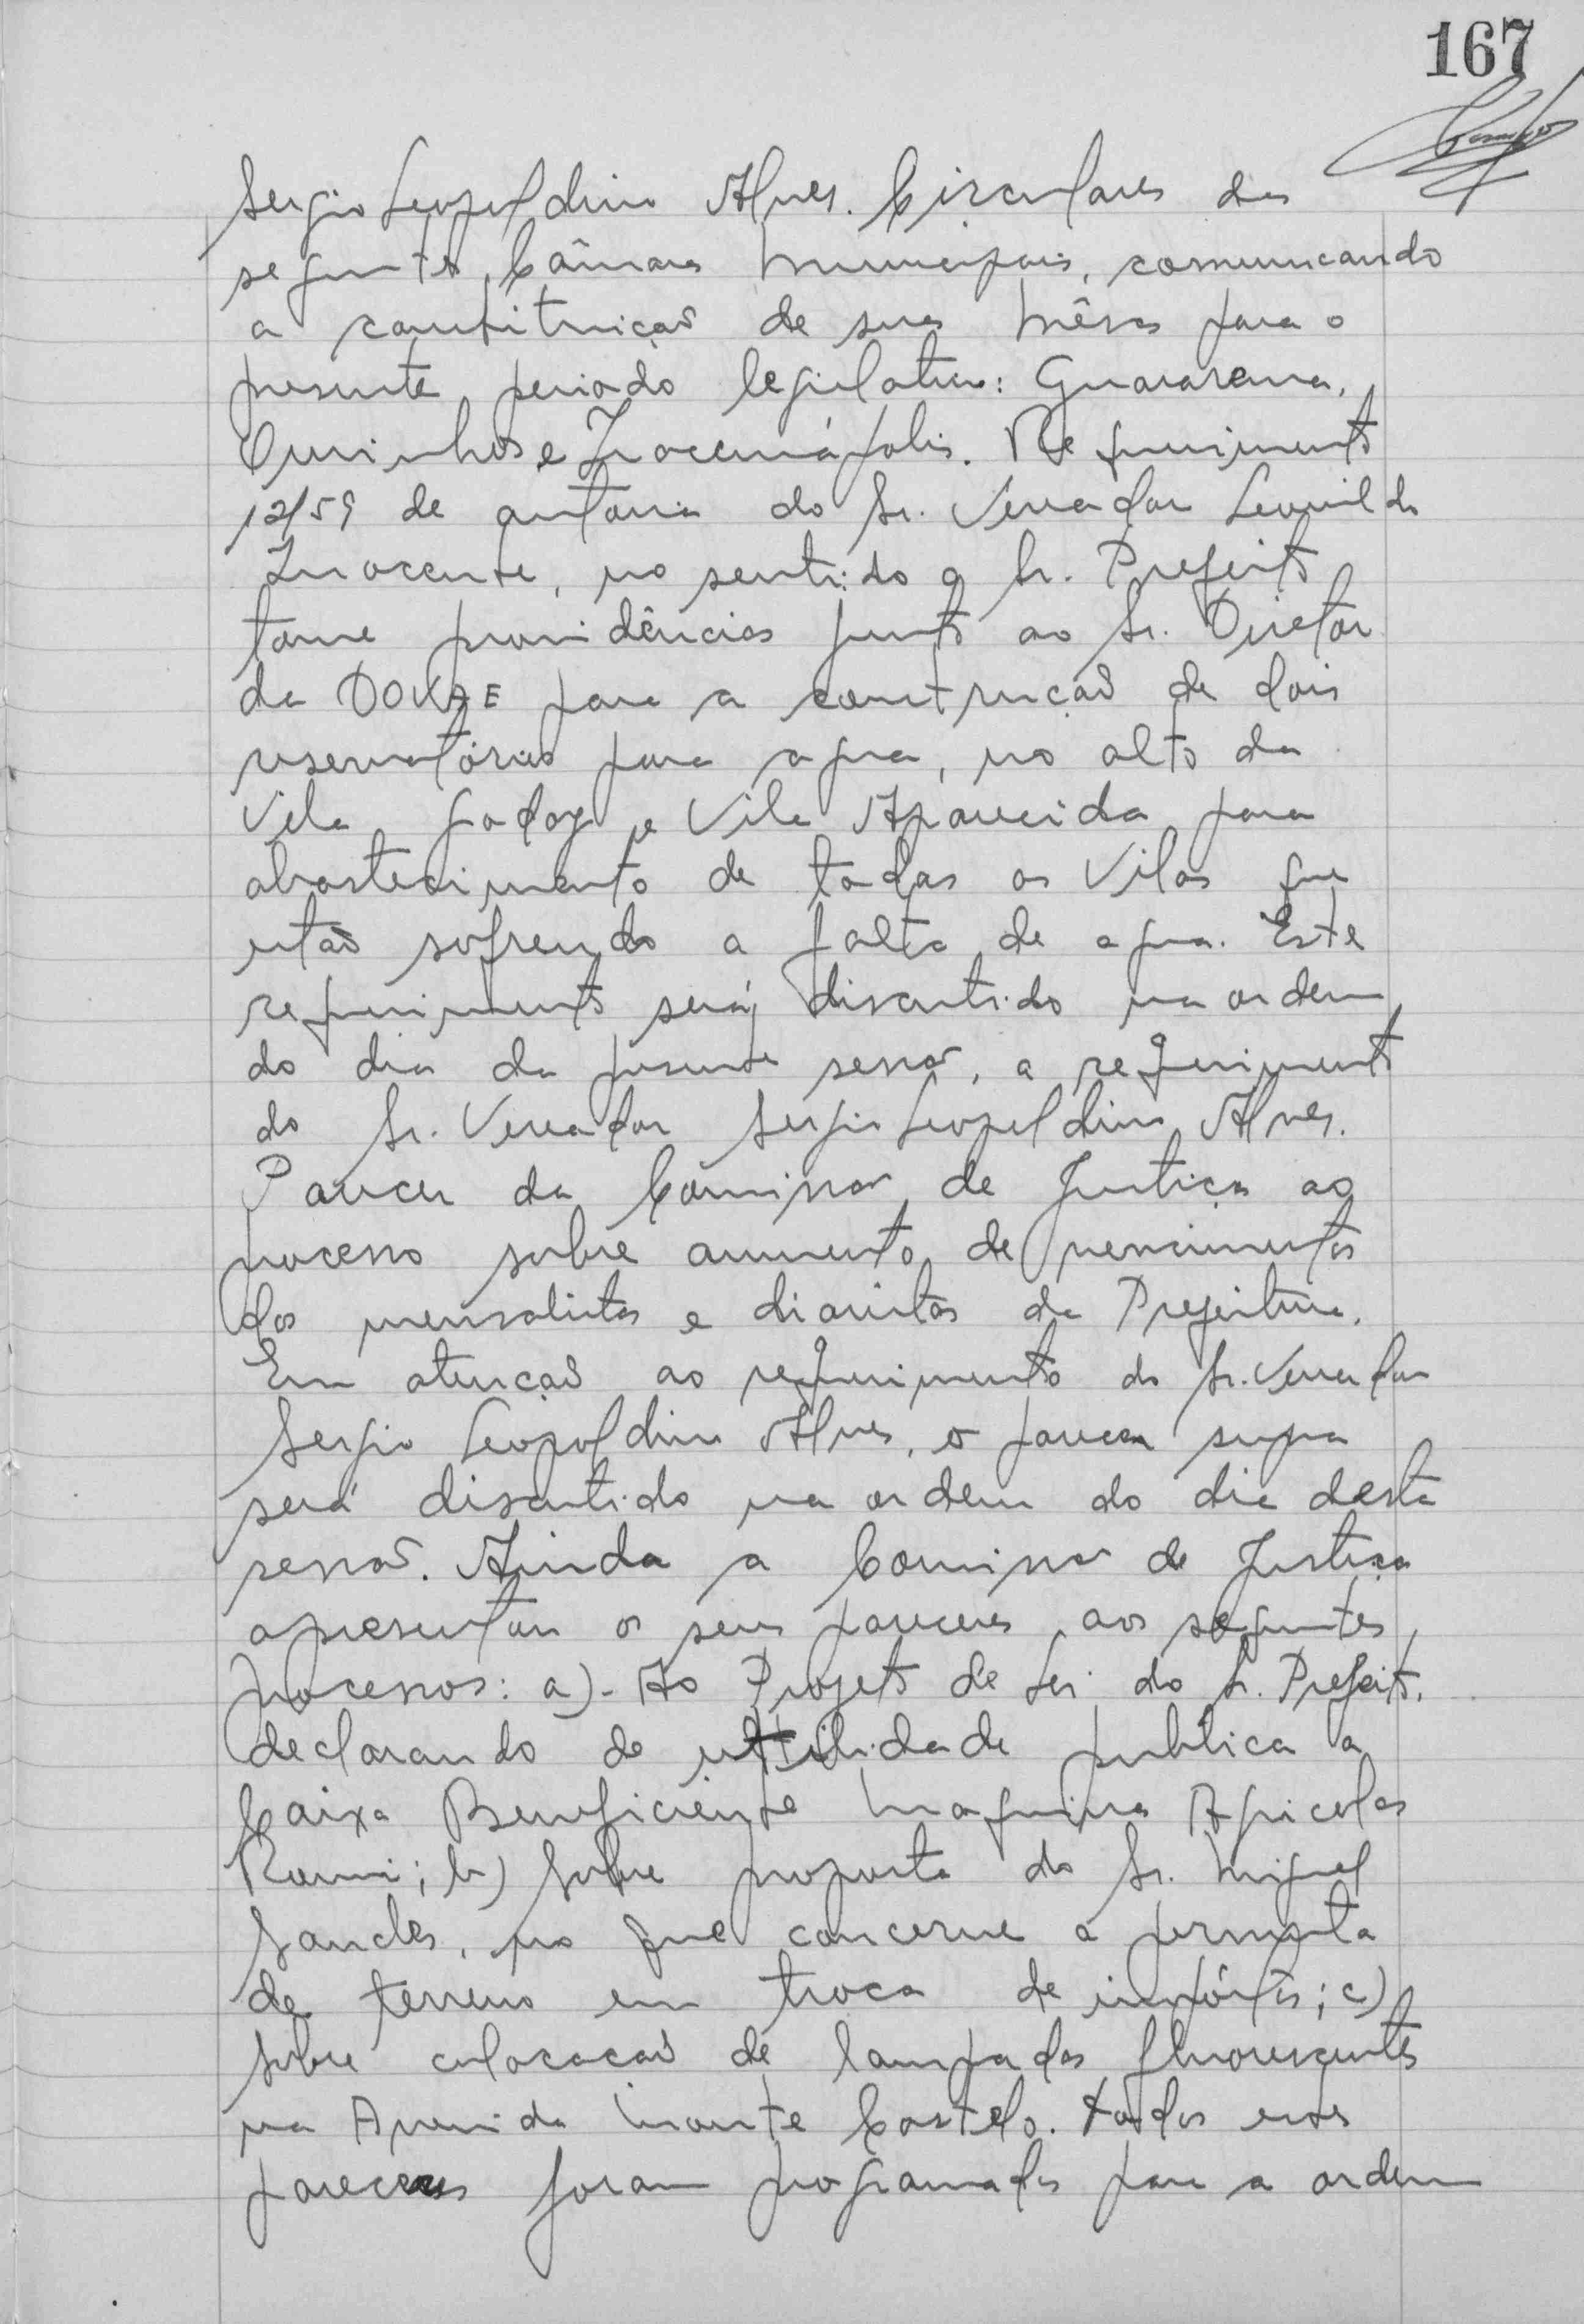 167
Sergio Leopoldino Alves. Circulares das
seguintes Câmaras Municipais, comunicando
a constituição de suas Mêsas para o
presente periodo legislativo: Guararema,
Ourinhos e Iracemápolis. Requerimento
12/59 de autoria do Sr. Vereador Leonildo
Inocente, no sentido q Sr. Prefeito
tome providências junto ao Sr. Diretor
da DOVAE para a construção de dois
reservatórios para agua, no alto da
Vila Godoy e Vila Aparecida para
abastecimento de todas as Vilas que
estão sofrendo a falta de agua. Este
requerimento será discutido na ordem
do dia da presente sessão, a requerimento
do Sr. Vereador Sergio Leopoldino Alves.
Parecer da Comissão de Justiça ao
processo sobre aumento de vencimentos
dos mensalistas e diaristas da Prefeitura.
Em atenção ao requerimento do Sr. Vereador
Sergio Leopoldino Alves, o parecer supra
será discutido na ordem do dia desta
sessão. Ainda a Comissão de Justiça
apresentou os seus pareceres aos seguintes
processos: a)- Ao Projeto de Lei do Sr. Prefeito,
declarando de utilidade publica a
Caixa Beneficiente Maquinas Agricolas
Romi; b) Sobre proposta do Sr. Miguel
Sanches, no que concerne a permuta
de terreno em troca de impôstos; c)
Sobre colocação de lampadas fluorescentes
na Avenida Monte Castelo. Todos esses
pareceres foram programados para a ordem